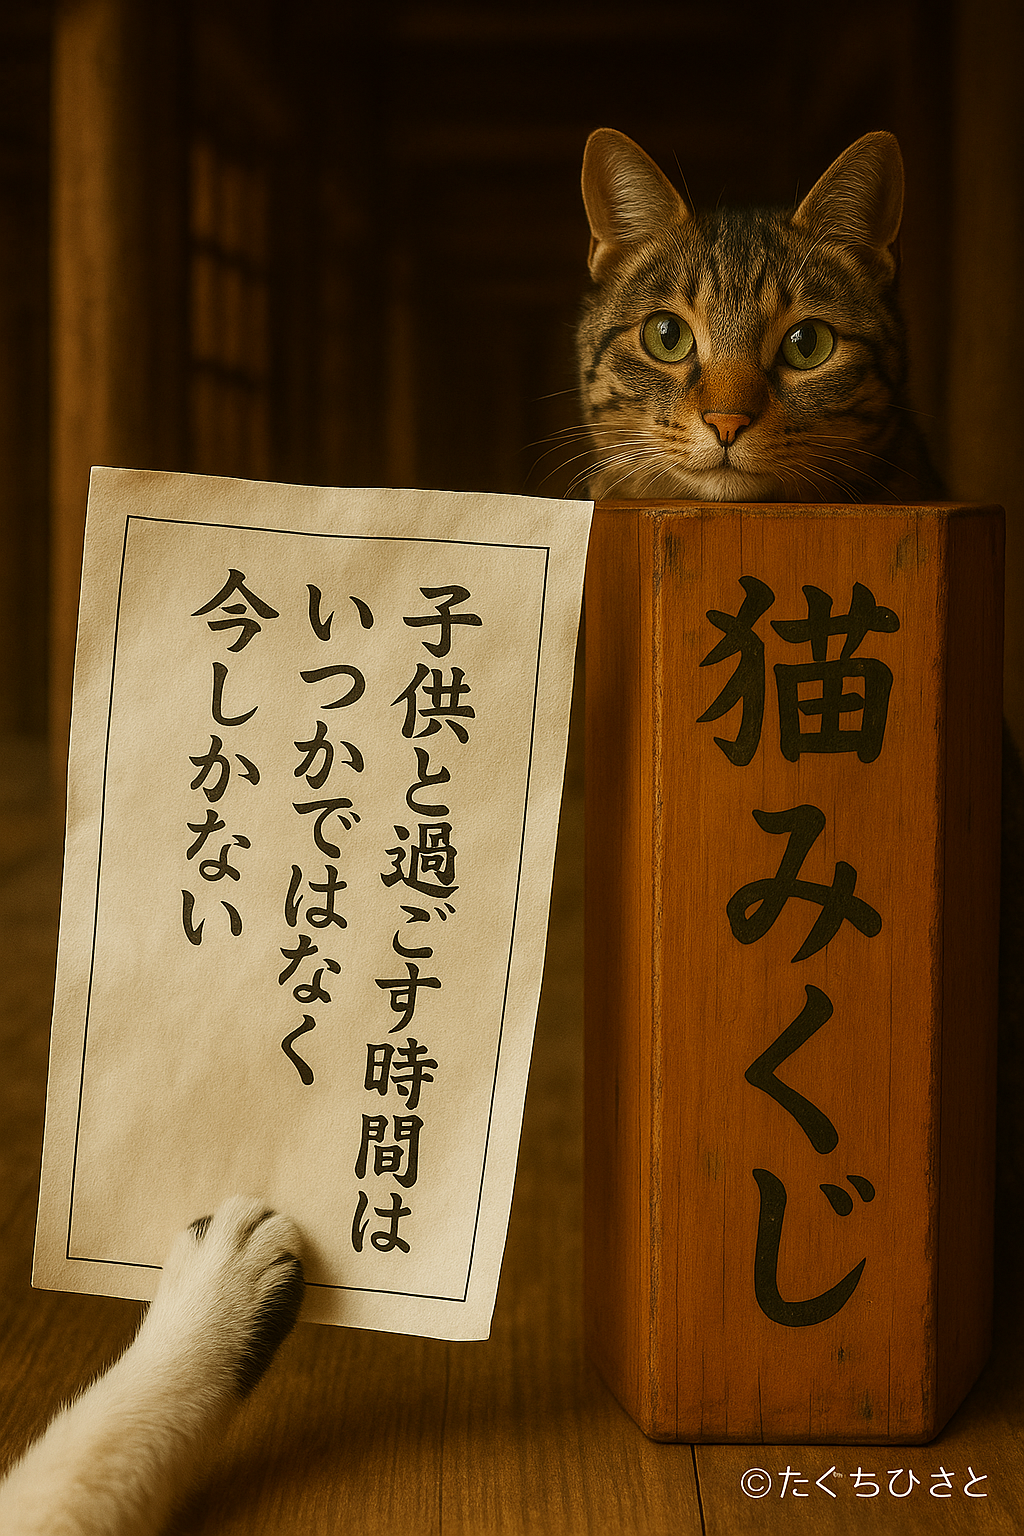 子供と過ごす時間は
いつかではなく
今しかない
猫みくじ
©たぐちひさと